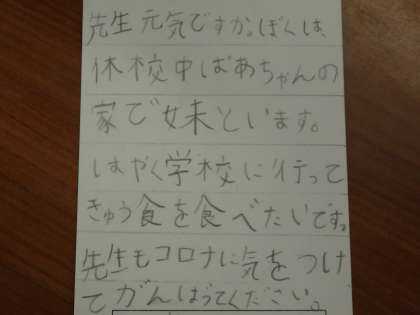 先生元気ですか。ぼくは、
休校中ばあちゃんの
家で妹といます。
はやく学校に行って
きゅう食を食べたいです。
先生もコロナに気をつけ
てがんばってください。